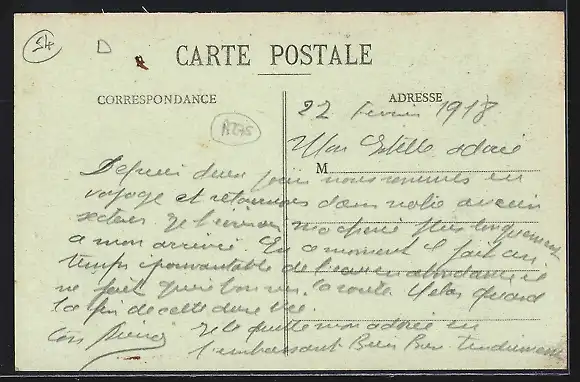 54
D
CARTE POSTALE
CORRESPONDANCE
ADRESSE
22 février 1918
A275
Mon Estelle adorée
M
Depuis deux jours nous sommes en
voyage et retournons dans notre ancien
secteur. Je t'écrirai ma chérie plus longuement
a mon arrivée. En ce moment il fait un
temps épouvantable de l'eau en abondance il
ne fait guère bon sur la route. Helas quand
la fin de cette dure vie.
Ton Pierrot
Je te quitte mon adorée en
t'embrassant Bien Bien tendrement